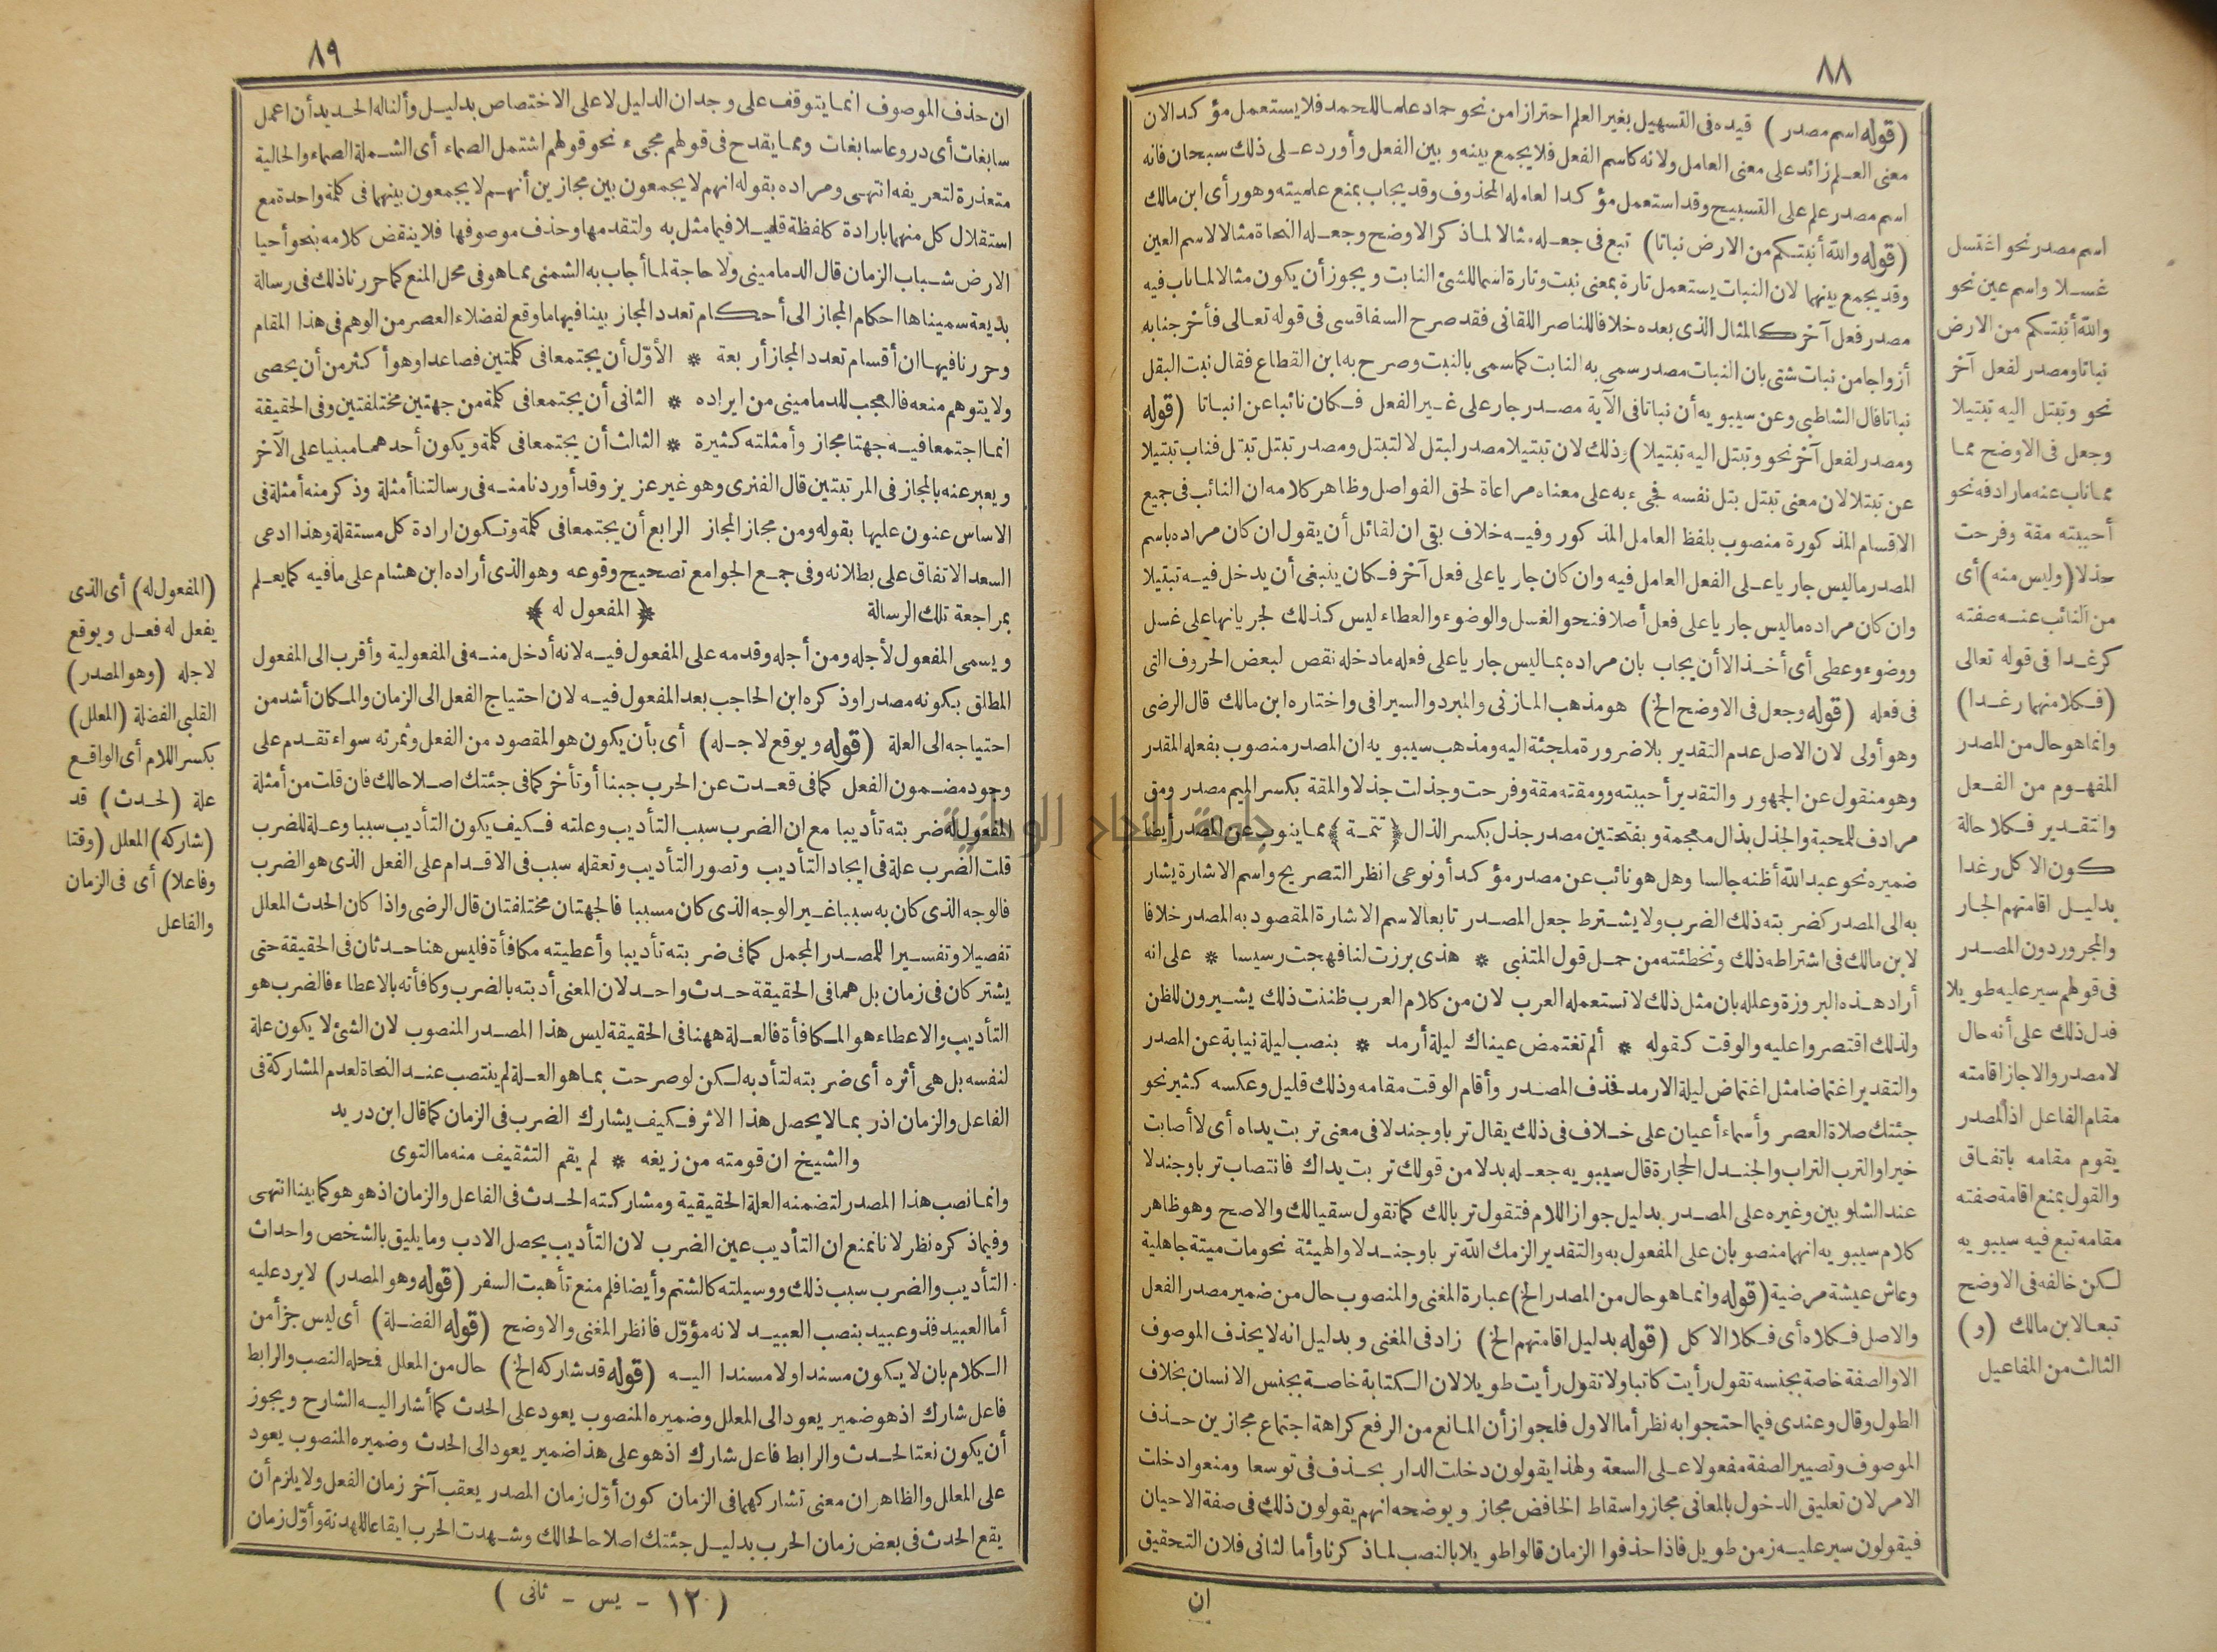 ٨٨
(قوله اسم مصدر) قيده فى التسهيل بغير العلم احترازا من نحو حماد علما للحمد فلا يستعمل مؤكدا لان
معنى العلم زائد على معنى العامل ولانه كاسم الفعل فلا يجمع بينه وبين الفعل وأورد على ذلك سبحان فانه
اسم مصدر علم على التسبيح وقد استعمل مؤكدا لعامله المحذوف وقد يجاب بمنع علميته وهو رأى ابن مالك
(قوله والله أنبتكم من الارض نباتا) تبع فى جعله مثالا لما ذكر الاوضح وجعله النحاة مثالا لاسم العين
وقد يجمع بينهما لان النبات يستعمل تارة بمعنى نبت وتارة اسما للشئ النابت ويجوز أن يكون مثالا لما ناب فيه
مصدر فعل آخر كالمثال الذى بعده خلافا للناصر اللقانى فقد صرح السفاقسى فى قوله تعالى فأخرجنا به
أزواجا من نبات شتى بان النبات مصدر سمى به النابت كما سمى بالنبت وصرح به ابن القطاع فقال نبت البقل
نباتا قال الشاطبى وعن سيبويه أن نباتا فى الآية مصدر جار على غير الفعل فكان نائبا عن انباتا (قوله
ومصدر لفعل آخر نحو وتبتل اليه تبتيلا) وذلك لان تبتيلا مصدر لبتل لا لتبتل ومصدر تبتل تبتل فناب تبتيلا
عن تبتلا لان معنى تبتل بتل نفسه فجىء به على معناه مراعاة لحق الفواصل وظاهر كلامه ان النائب فى جميع
الاقسام المذكورة منصوب بلفظ العامل المذكور وفيه خلاف بقى ان لقائل أن يقول ان كان مراده باسم
المصدر ما ليس جاريا على الفعل العامل فيه وان كان جاريا على فعل آخر فكان ينبغى أن يدخل فيه تبتيلا
وان كان مراده ما ليس جاريا على فعل أصلا فنحو الغسل والوضوء والعطاء ليس كذلك لجريانها على غسل
ووضوء وعطى أى أخذ الا أن يجاب بان مراده بما ليس جاريا على فعله ما دخله نقص لبعض الحروف التى
فى فعله (قوله وجعل فى الاوضح الخ) هو مذهب المازنى والمبرد والسيرافى واختاره ابن مالك قال الرضى
وهو أولى لان الاصل عدم التقدير بلا ضرورة ملجئة اليه ومذهب سيبويه ان المصدر منصوب بفعله المقدر
وهو منقول عن الجمهور والتقدير أحببته وومقته مقة وفرحت وجذلت جذلا والمقة بكسر الميم مصدر ومق
مرادف للمحبة والجذل بذال معجمة وبفتحتين مصدر جذل بكسر الذال ﴿تتمة﴾ مما ينوب عن المصدر أيضا
ضميره نحو عبد الله أظنه جالسا وهل هو نائب عن مصدر مؤكد أو نوعى انظر التصريح واسم الاشارة يشار
به الى المصدر كضربته ذلك الضرب ولا يشترط جعل المصدر تابعا لاسم الاشارة المقصود به المصدر خلافا
لابن مالك فى اشتراطه ذلك وتخطئته من حمل قول المتنبى * هذى برزت لنا فهجت رسيسا * على انه
أراد هذه البروزة وعلله بان مثل ذلك لا تستعمله العرب لان من كلام العرب ظننت ذلك يشيرون للظن
ولذلك اقتصروا عليه والوقت كقوله * ألم تغتمض عيناك ليلة أرمد * بنصب ليلة نيابة عن المصدر
والتقدير اغتماضا مثل اغتماض ليلة الارمد فحذف المصدر وأقام الوقت مقامه وذلك قليل وعكسه كثير نحو
جئتك صلاة العصر وأسماء أعيان على خلاف فى ذلك يقال تربا وجندلا فى معنى تربت يداه أى لا أصابت
خيرا والترب التراب والجندل الحجارة قال سيبويه جعله بدلا من قولك تربت يداك فانتصاب تربا وجندلا
عند الشلوبين وغيره على المصدر بدليل جواز اللام فتقول تربا لك كما تقول سقيا لك والاصح وهو ظاهر
كلام سيبويه انهما منصوبان على المفعول به والتقدير الزمك الله تربا وجندلا والهيئة نحو مات ميتة جاهلية
وعاش عيشة مرضية (قوله وانما هو حال من المصدر الخ) عبارة المغنى والمنصوب حال من ضمير مصدر الفعل
والاصل فكلاه أى فكلا الاكل (قوله بدليل اقامتهم الخ) زاد فى المغنى وبدليل انه لا يحذف الموصوف
الا والصفة خاصة بجنسه تقول رأيت كاتبا ولا تقول رأيت طويلا لان الكتابة خاصة بجنس الانسان بخلاف
الطول وقال وعندى فيما احتجوا به نظر أما الاول فلجواز أن المانع من الرفع كراهة اجتماع مجازين حذف
الموصوف وتصيير الصفة مفعولا على السعة ولهذا يقولون دخلت الدار بحذف فى توسعا ومنعوا دخلت
الامر لان تعليق الدخول بالمعانى مجاز واسقاط الخافض مجاز ويوضحه انهم يقولون ذلك فى صفة الاحيان
فيقولون سير عليه زمن طويل فاذا حذفوا الزمان قالوا طويلا بالنصب لما ذكرنا وأما الثانى فلان التحقيق
ان
اسم مصدر نحو اغتسل
غسلا واسم عين نحو
والله أنبتكم من الارض
نباتا ومصدر لفعل آخر
نحو وتبتل اليه تبتيلا
وجعل فى الاوضح مما
مما ناب عنه مارادفه نحو
أحببته مقة وفرحت
جذلا (وليس منه) أى
من النائب عنه صفته
كرغدا فى قوله تعالى
(فكلا منها رغدا)
وانما هو حال من المصدر
المفهوم من الفعل
والتقدير فكلا حالة
كون الاكل رغدا
بدليل اقامتهم الجار
والمجرور دون المصدر
فى قولهم سير عليه طويلا
فدل ذلك على أنه حال
لا مصدر والا جاز اقامته
مقام الفاعل اذ المصدر
يقوم مقامه باتفاق
والقول بمنع اقامة صفته
مقامه تبع فيه سيبويه
لكن خالفه فى الاوضح
تبعا لابن مالك (و)
الثالث من المفاعيل
٨٩
ان حذف الموصوف انما يتوقف على وجدان الدليل لا على الاختصاص بدليل وألنا له الحديد أن اعمل
سابغات أى دروعا سابغات ومما يقدح فى قولهم مجىء نحو قولهم اشتمل الصماء أى الشملة الصماء والحالية
متعذرة لتعريفه انتهى ومراده بقوله انهم لا يجمعون بين مجازين أنهم لا يجمعون بينهما فى كلمة واحدة مع
استقلال كل منهما بارادة كلفظة قليلا فيما مثل به ولتقدمها وحذف موصوفها فلا ينقض كلامه بنحو أحيا
الارض شباب الزمان قال الدمامينى ولا حاجة لما أجاب به الشمنى مما هو فى محل المنع كما حررنا ذلك فى رسالة
بديعة سميناها احكام المجاز الى أحكام تعدد المجاز بينا فيها ما وقع لفضلاء العصر من الوهم فى هذا المقام
وحررنا فيها ان أقسام تعدد المجاز أربعة * الأوّل أن يجتمعا فى كلمتين فصاعدا وهو أكثر من أن يحصى
ولا يتوهم منعه فالعجب للدمامينى من ايراده * الثانى أن يجتمعا فى كلمة من جهتين مختلفتين وفى الحقيقة
انما اجتمعا فيه جهتا مجاز وأمثلته كثيرة * الثالث أن يجتمعا فى كلمة ويكون أحدهما مبنيا على الآخر
ويعبر عنه بالمجاز فى المرتبتين قال الفنرى وهو غير عزيز وقد أوردنا منه فى رسالتنا أمثلة وذكر منه أمثلة فى
الاساس عنون عليها بقوله ومن مجاز المجاز الرابع أن يجتمعا فى كلمة وتكون ارادة كل مستقلة وهذا ادعى
السعد الاتفاق على بطلانه وفى جمع الجوامع تصحيح وقوعه وهو الذى أراده ابن هشام على ما فيه كما يعلم
بمراجعة تلك الرسالة ﴿* المفعول له *﴾
ويسمى المفعول لأجله ومن أجله وقدمه على المفعول فيه لانه أدخل منه فى المفعولية وأقرب الى المفعول
المطلق بكونه مصدرا وذكره ابن الحاجب بعد المفعول فيه لان احتياج الفعل الى الزمان والمكان أشد من
احتياجه الى العلة (قوله ويوقع لاجله) أى بأن يكون هو المقصود من الفعل وثمرته سواء تقدم على
وجود مضمون الفعل كما فى قعدت عن الحرب جبنا أو تأخر كما فى جئتك اصلاحا لك فان قلت من أمثلة
المفعول له ضربته تأديبا مع ان الضرب سبب التأديب وعلته فكيف يكون التأديب سببا وعلة للضرب
قلت الضرب علة فى ايجاد التأديب وتصور التأديب وتعقله سبب فى الاقدام على الفعل الذى هو الضرب
فالوجه الذى كان به سببا غير الوجه الذى كان مسببا فالجهتان مختلفتان قال الرضى واذا كان الحدث المعلل
تفصيلا وتفسيرا للمصدر المجمل كما فى ضربته تأديبا وأعطيته مكافأة فليس هنا حدثان فى الحقيقة حتى
يشتركان فى زمان بل هما فى الحقيقة حدث واحد لان المعنى أدبته بالضرب وكافأته بالاعطاء فالضرب هو
التأديب والاعطاء هو المكافأة فالعلة ههنا فى الحقيقة ليس هذا المصدر المنصوب لان الشئ لا يكون علة
لنفسه بل هى أثره أى ضربته لتأدبه لكن لو صرحت بما هو العلة لم ينتصب عند النحاة لعدم المشاركة فى
الفاعل والزمان اذ ربما لا يحصل هذا الاثر فكيف يشارك الضرب فى الزمان كما قال ابن دريد
والشيخ ان قومته من زيغه * لم يقم التثقيف منه ما التوى
وانما نصب هذا المصدر لتضمنه العلة الحقيقية ومشاركته الحدث فى الفاعل والزمان اذ هو هو كما بينا انتهى
وفيما ذكره نظر لانا نمنع ان التأديب عين الضرب لان التأديب يحصل الادب وما يليق بالشخص واحداث
التأديب والضرب سبب ذلك ووسيلته كالشتم وأيضا فلم منع تأهبت السفر (قوله وهو المصدر) لا يرد عليه
أما العبيد فذو عبيد بنصب العبيد لانه مؤوّل فانظر المغنى والاوضح (قوله الفضلة) أى ليس جزأ من
الكلام بان لا يكون مسندا ولا مسندا اليه (قوله قد شاركه الخ) حال من المعلل فمحله النصب والرابط
فاعل شارك اذ هو ضمير يعود الى المعلل وضميره المنصوب يعود على الحدث كما أشار اليه الشارح ويجوز
أن يكون نعتا لحدث والرابط فاعل شارك اذ هو على هذا ضمير يعود الى الحدث وضميره المنصوب يعود
على المعلل والظاهر ان معنى تشاركهما فى الزمان كون أوّل زمان المصدر يعقب آخر زمان الفعل ولا يلزم أن
يقع الحدث فى بعض زمان الحرب بدليل جئتك اصلاحا لحالك وشهدت الحرب ايقاعا للهدنة وأوّل زمان
(١٢ - يس - ثانى)
(المفعول له) أى الذى
يفعل له فعل ويوقع
لاجله (وهو المصدر)
القلبى الفضلة (المعلل)
بكسر اللام أى الواقع
علة (لحدث) قد
(شاركه) المعلل (وقتا
وفاعلا) أى فى الزمان
والفاعل